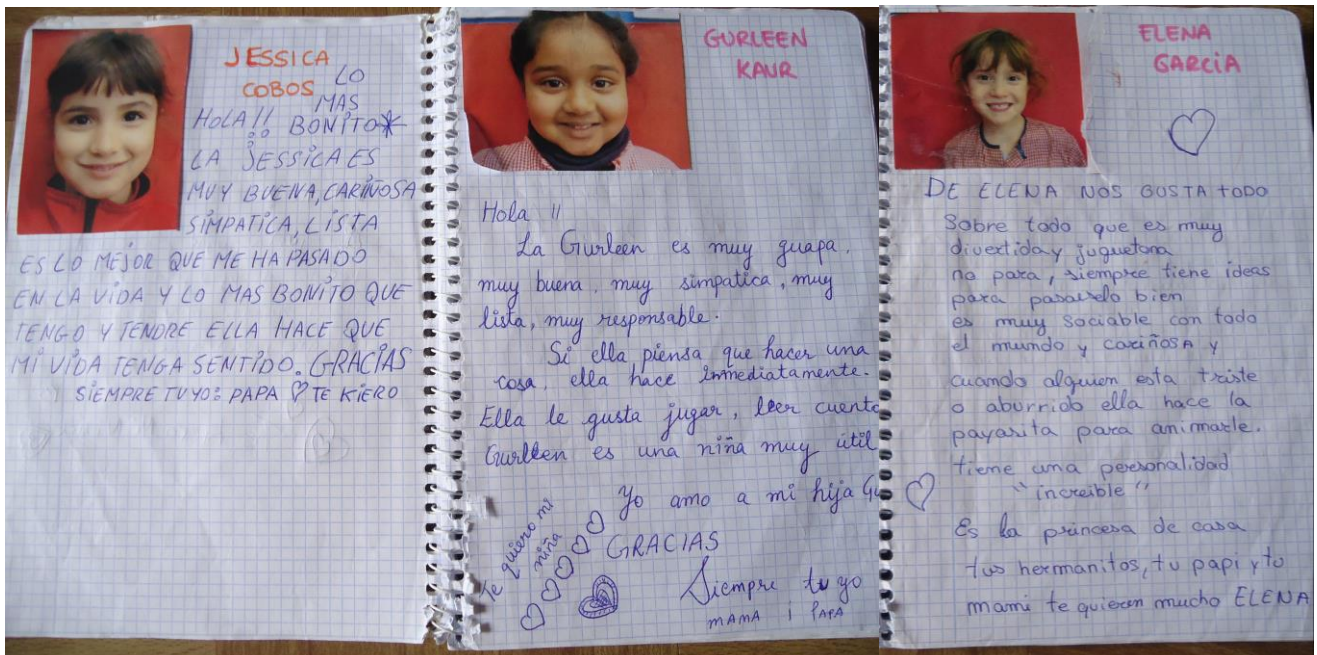 JESSICA
COBOS
LO
MAS
HOLA!! BONITO*
LA JESSICA ES
MUY BUENA, CARIÑOSA
SIMPATICA, LISTA
ES LO MEJOR QUE ME HA PASADO
EN LA VIDA Y LO MAS BONITO QUE
TENGO Y TENDRE ELLA HACE QUE
MI VIDA TENGA SENTIDO. GRACIAS
SIEMPRE TUYO: PAPA ♡ TE KIERO
GURLEEN
KAUR
Hola !!
La Gurleen es muy guapa,
muy buena, muy simpatica, muy
lista, muy responsable.
Si ella piensa que hacer una
cosa, ella hace inmediatamente.
Ella le gusta jugar, leer cuento
Gurleen es una niña muy útil
Yo amo a mi hija Gu
Te quiero mi
niña
GRACIAS
Siempre tu yo
MAMA i PAPA
ELENA
GARCIA
DE ELENA NOS GUSTA todo
Sobre todo que es muy
divertida y juguetona
no para, siempre tiene ideas
para pasarselo bien
es muy sociable con todo
el mundo y cariñosa y
cuando alguien esta triste
o aburrido ella hace la
payasita para animarle.
tiene una personalidad
"increible"
Es la princesa de casa
tus hermanitos, tu papi y tu
mami te quieren mucho ELENA